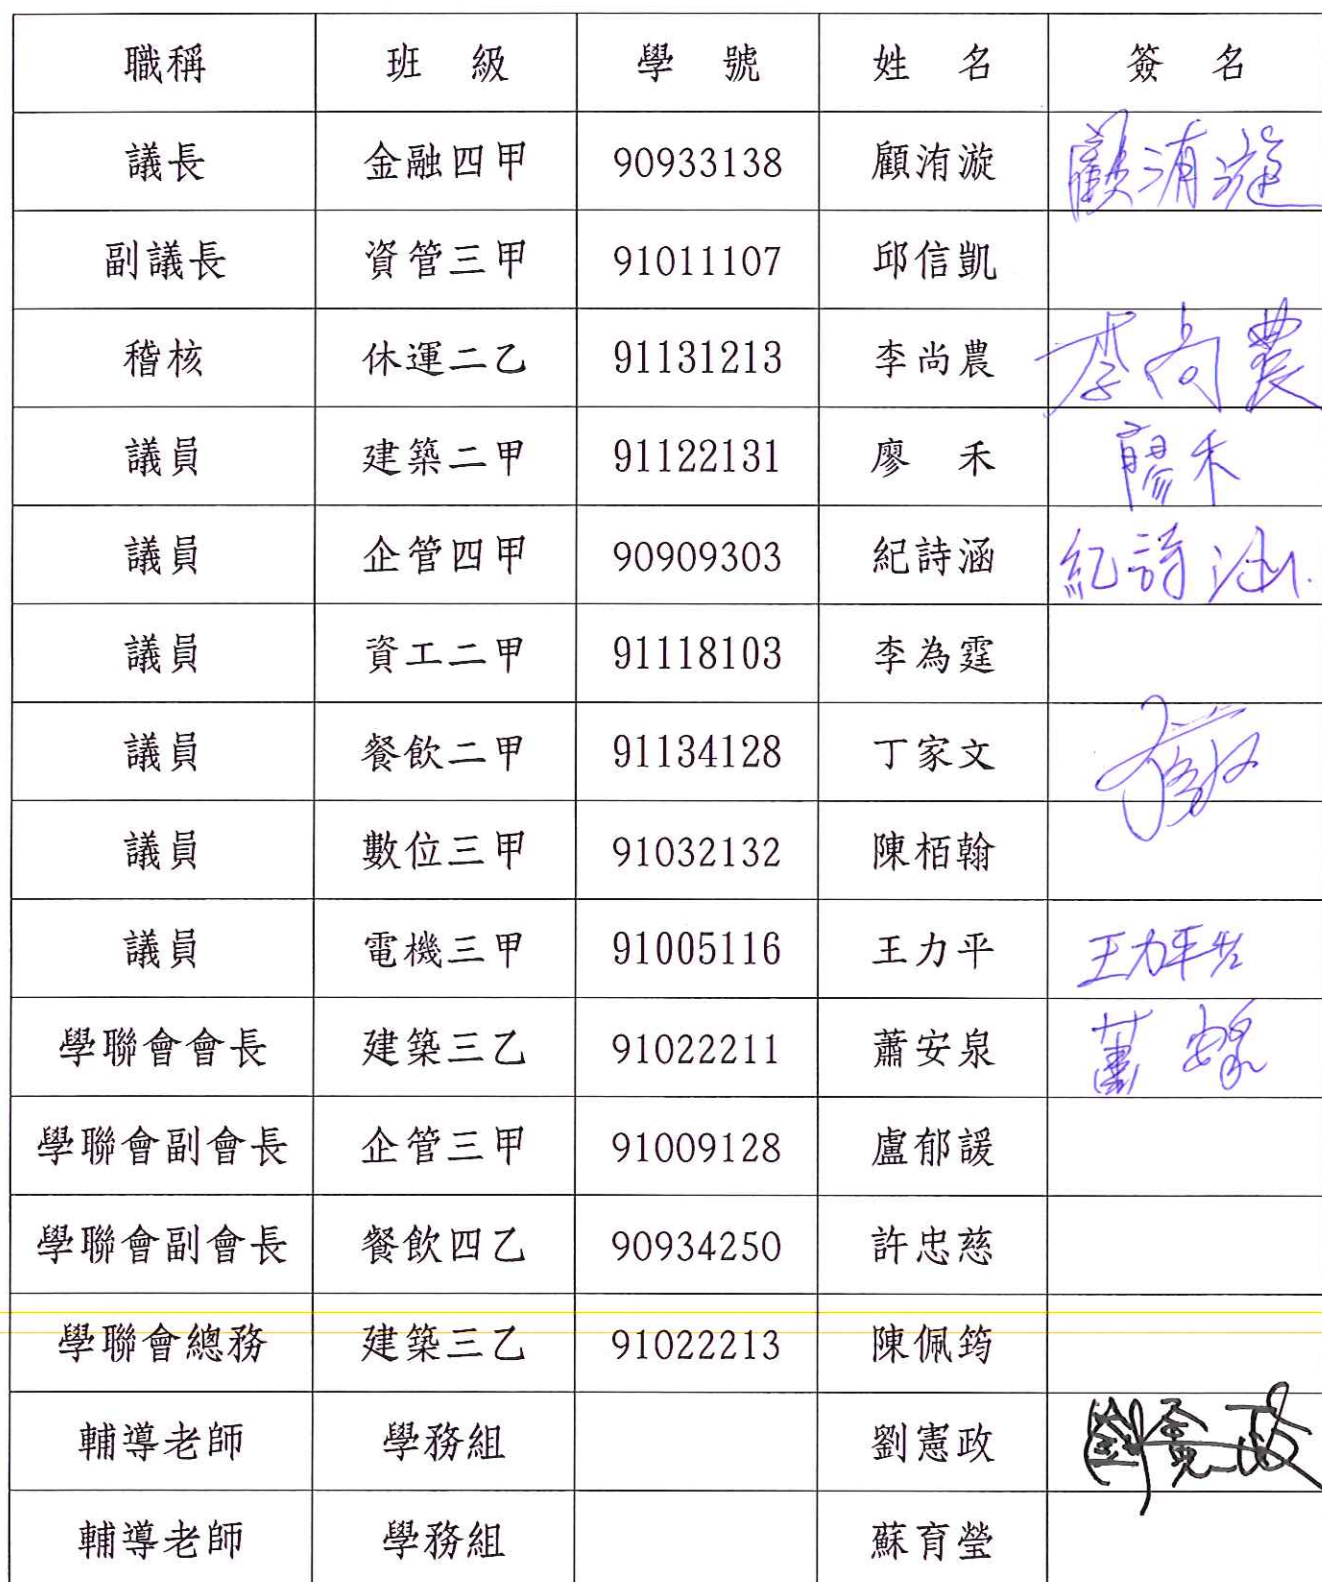 職稱 班 級 學 號 姓 名 簽 名
議長 金融四甲 90933138 顧洧漩 顧洧漩
副議長 資管三甲 91011107 邱信凱
稽核 休運二乙 91131213 李尚農 李尚農
議員 建築二甲 91122131 廖 禾 廖禾
議員 企管四甲 90909303 紀詩涵 紀詩涵
議員 資工二甲 91118103 李為霆
議員 餐飲二甲 91134128 丁家文
議員 數位三甲 91032132 陳栢翰
議員 電機三甲 91005116 王力平 王力平
學聯會會長 建築三乙 91022211 蕭安泉 蕭安泉
學聯會副會長 企管三甲 91009128 盧郁諼
學聯會副會長 餐飲四乙 90934250 許忠慈
學聯會總務 建築三乙 91022213 陳佩筠
輔導老師 學務組 劉憲政 劉憲政
輔導老師 學務組 蘇育瑩